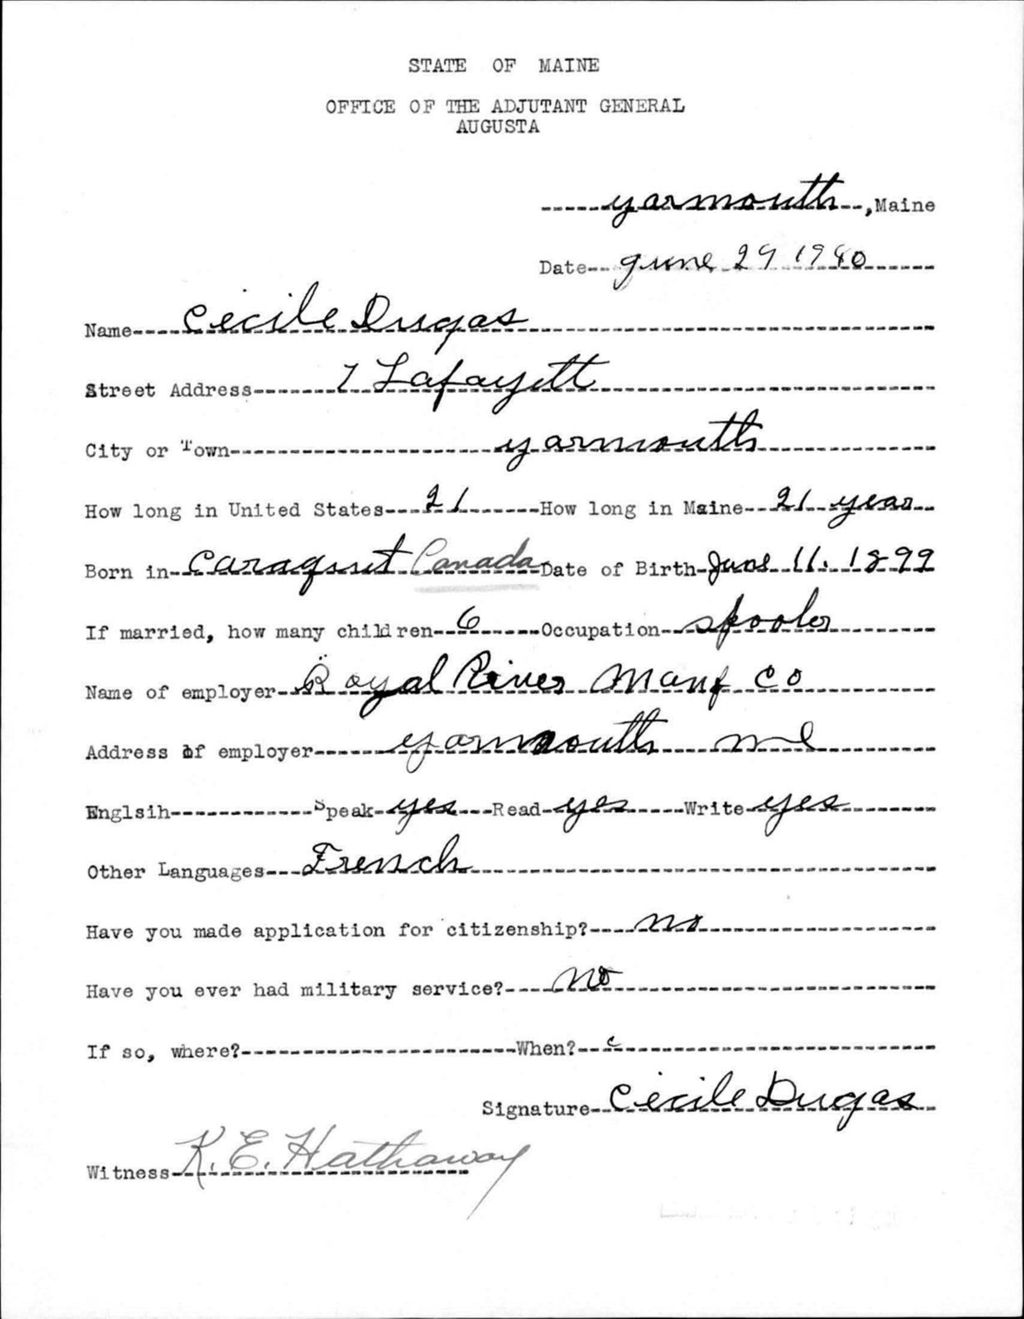 STATE OF MAINE
OFFICE OF THE ADJUTANT GENERAL
AUGUSTA
yarmouth, Maine
Date June 29 1940
Name Cecile Dugas
Street Address 7 Lafayett
City or Town yarmouth
How long in United States 21 How long in Maine 21 year
Born in Caraquet Canada Date of Birth June 11. 1899
If married, how many children 6 Occupation spooler
Name of employer Royal River Manf Co
Address of employer yarmouth me
Englsih Speak yes Read yes Write yes
Other Languages French
Have you made application for citizenship? no
Have you ever had military service? no
If so, where? When? c
Signature Cecile Dugas
Witness K. E. Hathaway